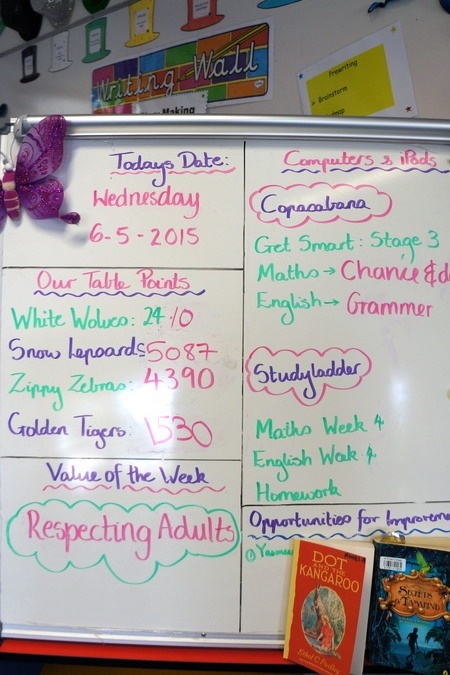 Writing Wall
Making
Prewriting
Brainstorm
Todays Date:
Wednesday
6-5-2015
Our Table Points
White Wolves: 2410
Snow Lepoards 5087
Zippy Zebras: 4390
Golden Tigers: 1530
Value of the Week
Respecting Adults
Computers & iPads
Copacabana
Get Smart: Stage 3
Maths → Chance & d
English → Grammer
Studyladder
Maths Week 4
English Week 4
Homework
Opportunities for Improveme
① Yasmee
DOT
AND THE
KANGAROO
Ethel C. Pedley
SECRETS
OF
TAMARIND